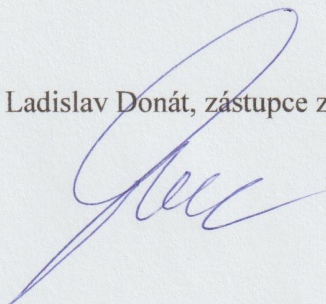 Ladislav Donát, zástupce z